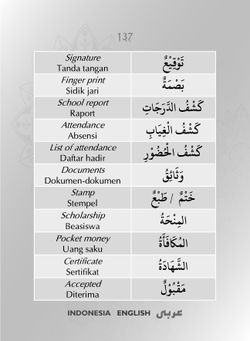 137
Signature
Tanda tangan
تَوْقِيْعٌ
Finger print
Sidik jari
بَصْمَةٌ
School report
Raport
كَشْفُ الدَّرَجَاتِ
Attendance
Absensi
كَشْفُ الْغِيَابِ
List of attendance
Daftar hadir
كَشْفُ الْحُضُوْرِ
Documents
Dokumen-dokumen
وَثَائِقُ
Stamp
Stempel
خَتْمٌ / طَبْعٌ
Scholarship
Beasiswa
المِنْحَةُ
Pocket money
Uang saku
المُكَافَأَةُ
Certificate
Sertifikat
الشَّهَادَةُ
Accepted
Diterima
مَقْبُوْلٌ
INDONESIA ENGLISH عربي